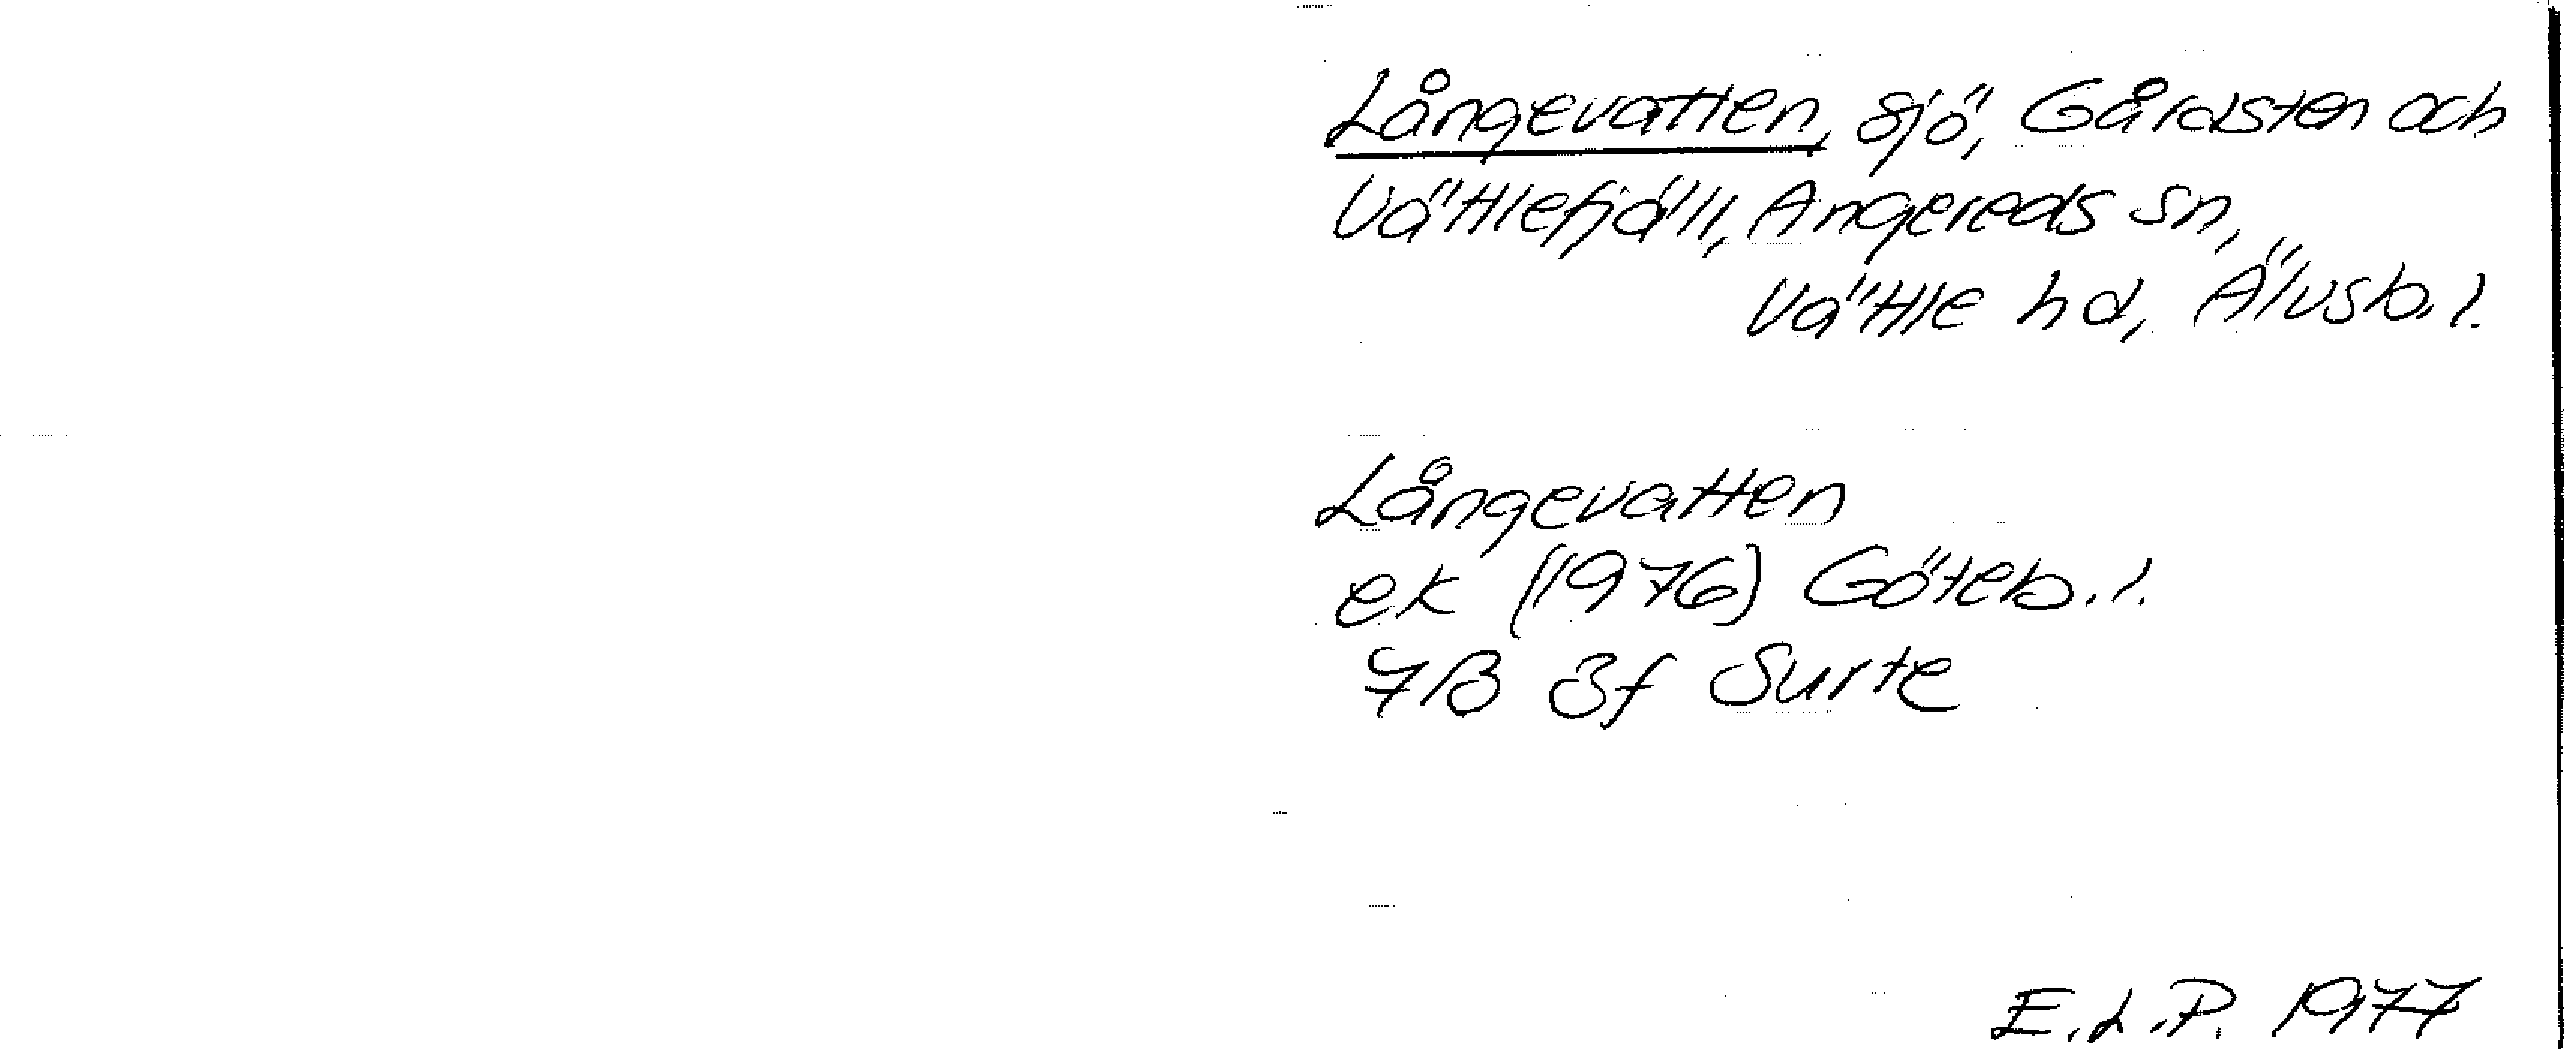 Långevatten, sjö, Gårdsten och
Vättlefjäll, Angereds sn,
Vättle hd, Älvsb. l.
Långevatten
ek (1976) Göteb. l.
7B 3f Surte
E.L.P. 1977